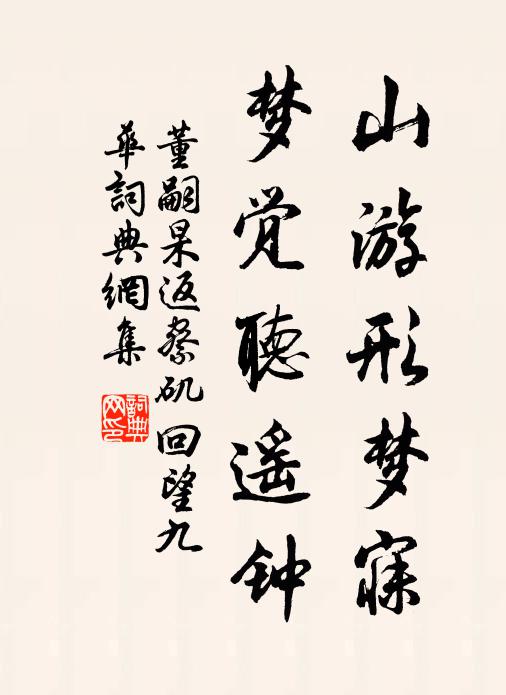 山游形梦寐
梦觉聽遥钟
董嗣杲返蔡矶回望九
華詞典網集
詞典网印